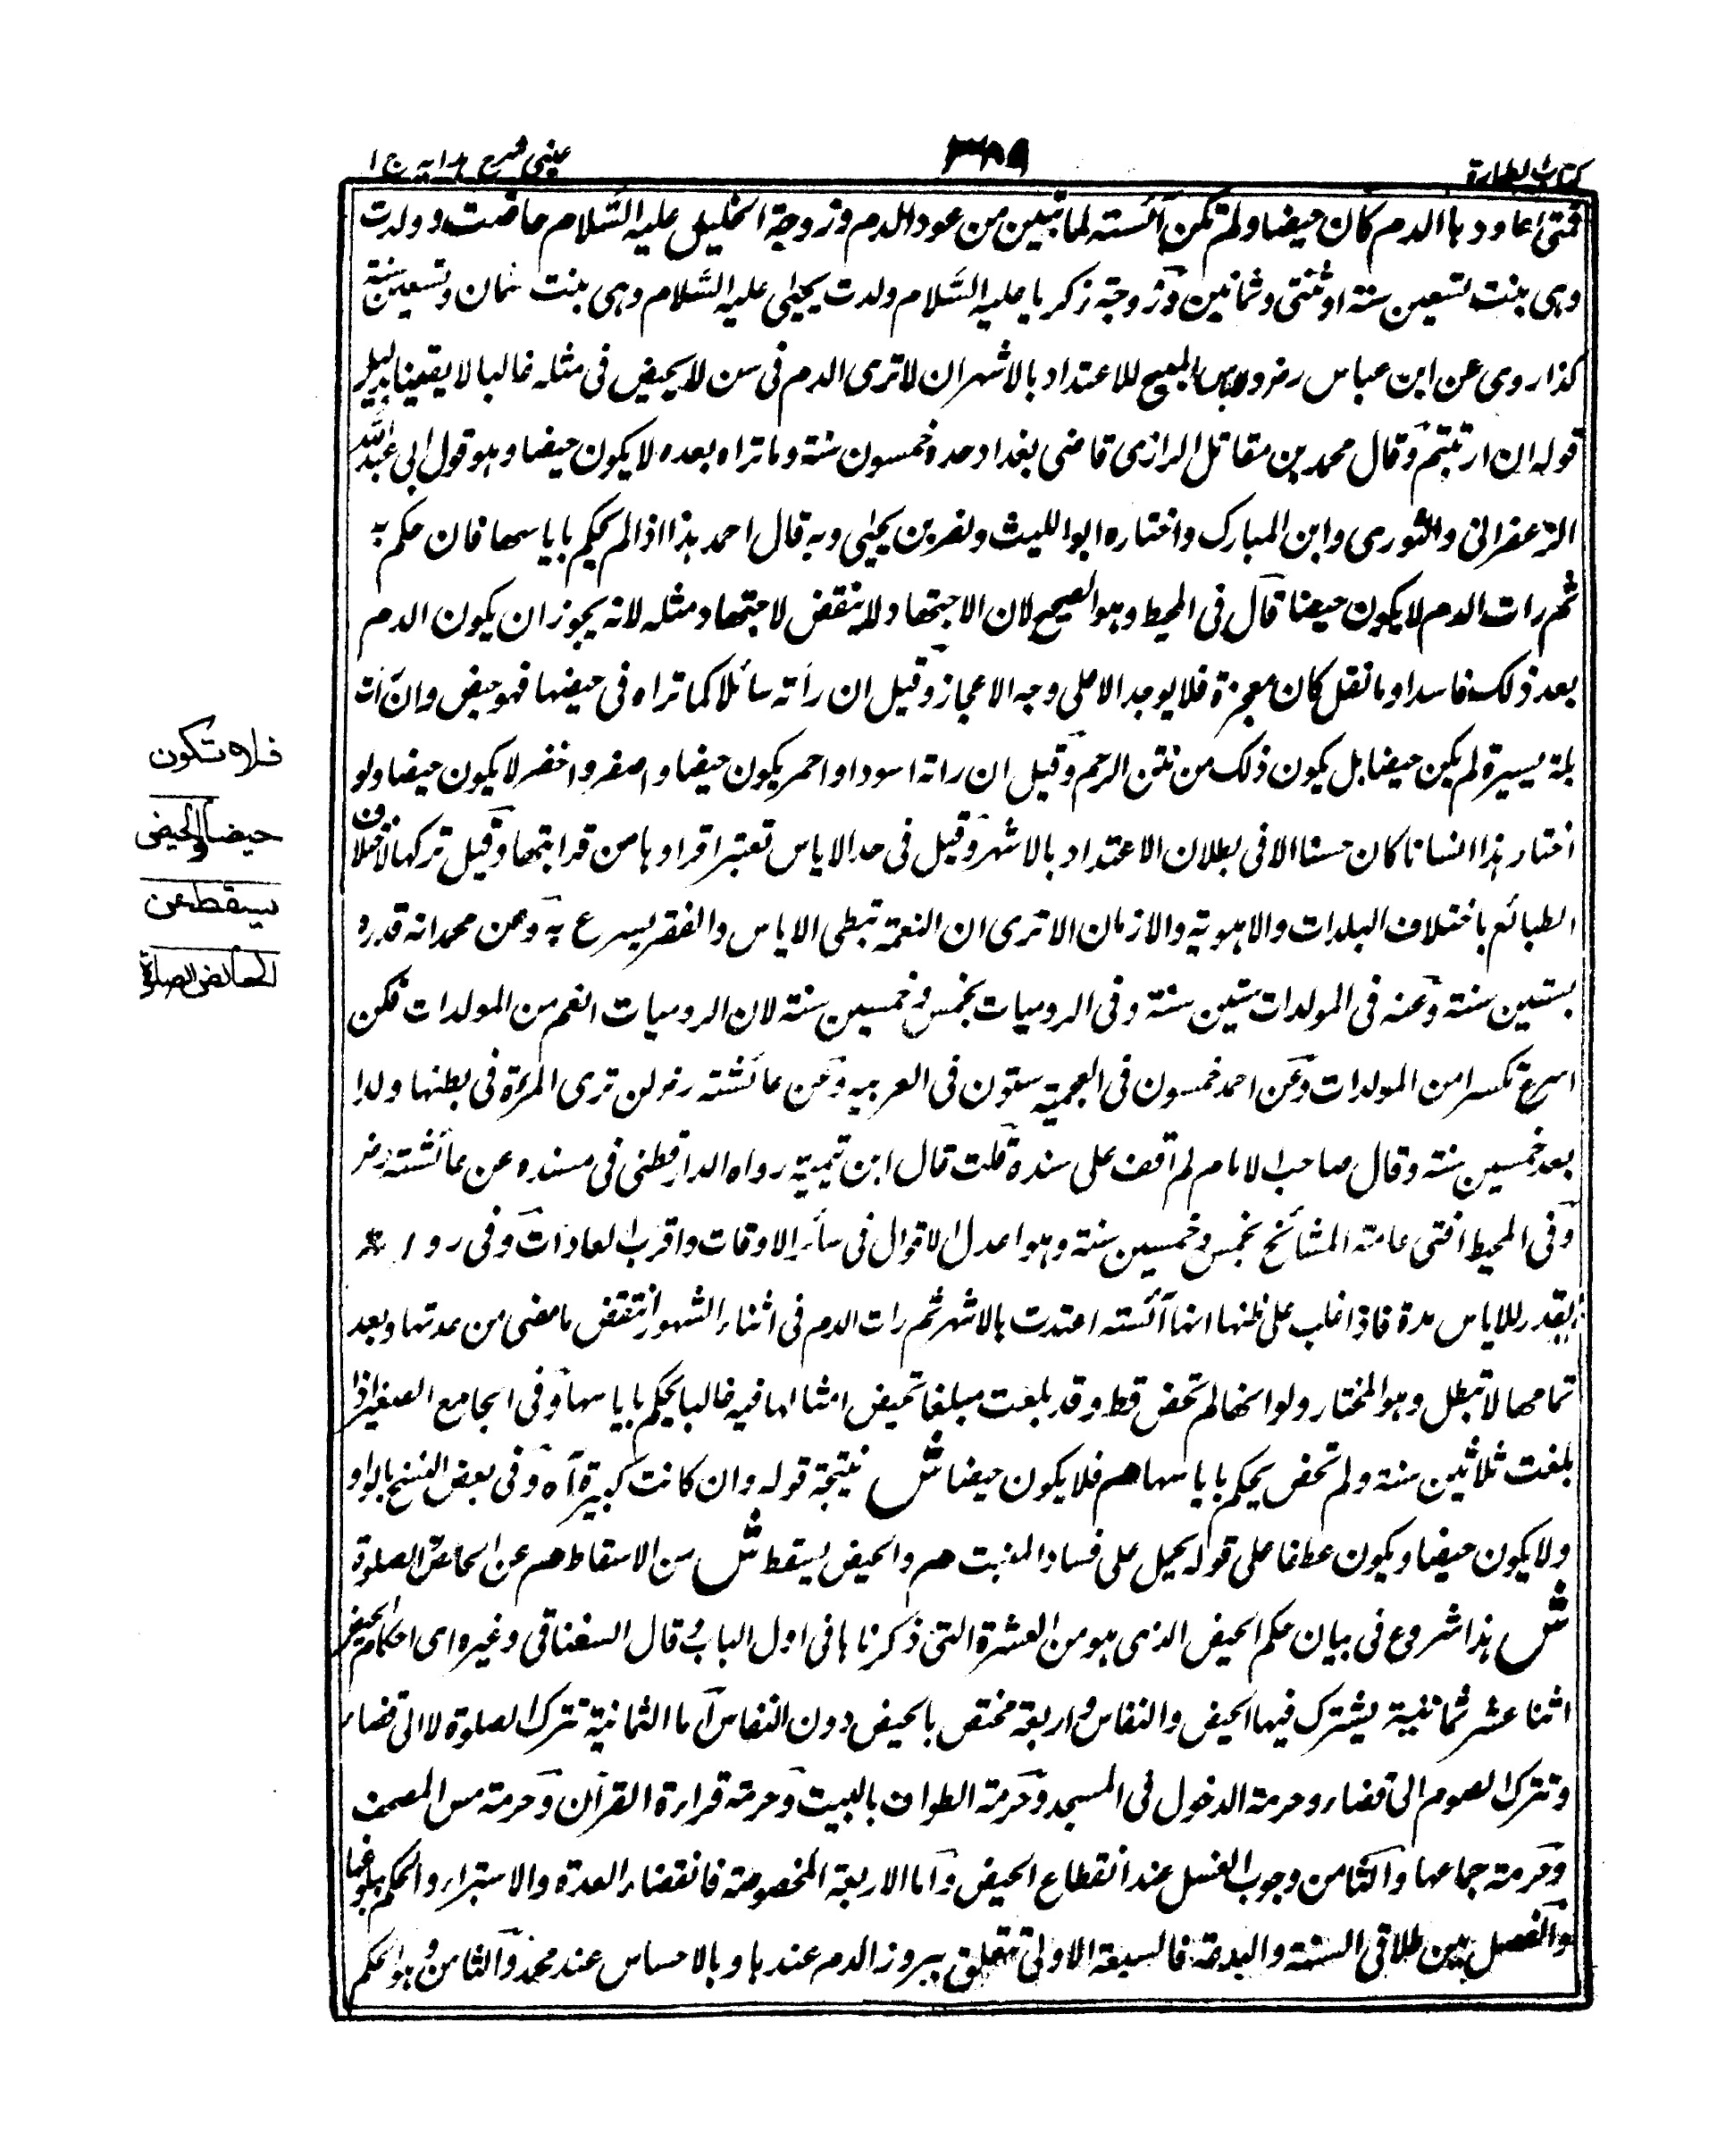 كتاب الطهارة
٣٨٩
عينى شرح هدايه ج ١
فمتى عاودها الدم كان حيضا ولم تكن آئسته لما تبين من عود الدم وزوجة الخليل عليه السلام حاضت وولدت
وهى بنت تسعين سنة او ثنتى وثمانين وزوجة زكريا عليه السلام ولدت يحيى عليه السلام وهى بنت ثمان وتسعين سنة
كذا روى عن ابن عباس رض المبيح للاعتداد بالاشهر ان لا ترى الدم فى سن لا يحيض فى مثله غالبا لا يقينا بدليل
قوله ان ارتبتم وقال محمد بن مقاتل الرازى قاضى بغداد حده خمسون سنة وما تراه بعده لا يكون حيضا وهو قول ابى عبد الله
الزعفرانى والثورى وابن المبارك واختاره ابو الليث ونصر بن يحيى وبه قال احمد هذا اذا لم يحكم باياسها فان حكم به
ثم رات الدم لا يكون حيضا قال فى المحيط وهو الصحيح لان الاجتهاد لا ينقض لاجتهاد مثله لانه يجوز ان يكون الدم
بعد ذلك فاسدا وما نقل كان معجزة فلا يوجد الا على وجه الاعجاز وقيل ان رأته سائلا كما تراه فى حيضها فهو حيض وان رأت
بلة يسيرة لم يكن حيضا بل يكون ذلك من نتن الرحم وقيل ان راته اسود او احمر يكون حيضا واصفر واخضر لا يكون حيضا ولو
اختار هذا انسانا كان حسنا الا فى بطلان الاعتداد بالاشهر وقيل فى حد الاياس تعتبر اقراوها من قرابتها وقيل تركها لاختلاف
الطبائع باختلاف البلدات والاهوية والازمان الا ترى ان النعمة تبطى الاياس والفقر يسرع به وعن محمد انه قدره
بستين سنة وعنه فى المولدات ستين سنة وفى الروميات بخمس وخمسين سنة لان الروميات انعم من المولدات فكن
اسرع تكسرا من المولدات وعن احمد خمسون فى العجمية ستون فى العربيه وعن عائشته رض لن ترى المرءة فى بطنها ولدا
بعد خمسين سنة وقال صاحب الامام لم اقف على سنده قلت قال ابن تيمية رواه الدارقطنى فى مسنده عن عائشته رض
وفى المحيط افتى عامة المشائخ بخمس وخمسين سنة وهو اعدل الاقوال فى سائر الاوقات واقرب العادات وفى رواية
يقدر للاياس مدة فاذا غلب على ظنها انها آئسته اعتدت بالاشهر ثم رات الدم فى اثناء الشهور انتقض ما مضى من عدتها وبعد
تمامها لا تبطل وهو المختار ولو انها لم تحض قط وقد بلغت مبلغا تحيض امثالها فيه غالبا يحكم باياسها وفى الجامع الصغير اذا
بلغت ثلاثين سنة ولم تحض يحكم باياسها م فلا يكون حيضا ش نتيجة قوله وان كانت كبيرة آه وفى بعض النسخ بالواو
ولا يكون حيضا ويكون عطفا على قوله يحمل على فساد المنبت م والحيض يسقط ش من الاسقاط م عن الحائض الصلوة
ش هذا شروع فى بيان حكم الحيض الذى هو من العشرة التى ذكرناها فى اول الباب وقال السغناقى وغيره اى احكام الحيض
اثنا عشر ثمانية يشترك فيها الحيض والنفاس واربعة مختص بالحيض دون النفاس اما الثمانية تترك الصلوة لا الى قضاء
وتترك الصوم الى قضاء وحرمة الدخول فى المسجد وحرمة الطواف بالبيت وحرمة قراءة القرآن وحرمة مس المصحف
وحرمة جماعها والثامن وجوب الغسل عند انقطاع الحيض واما الاربعة المخصوصة فانقضاء العدة والاستبراء والحكم ببلوغها
والفصل بين طلاقى السنة والبدعة فالسبعة الاولى تتعلق ببروز الدم عندها وبالاحساس عند محمد والثامن هو الحكم
فلا تكون
حيضا والحيض
يسقط عن
الحائض الصلوة